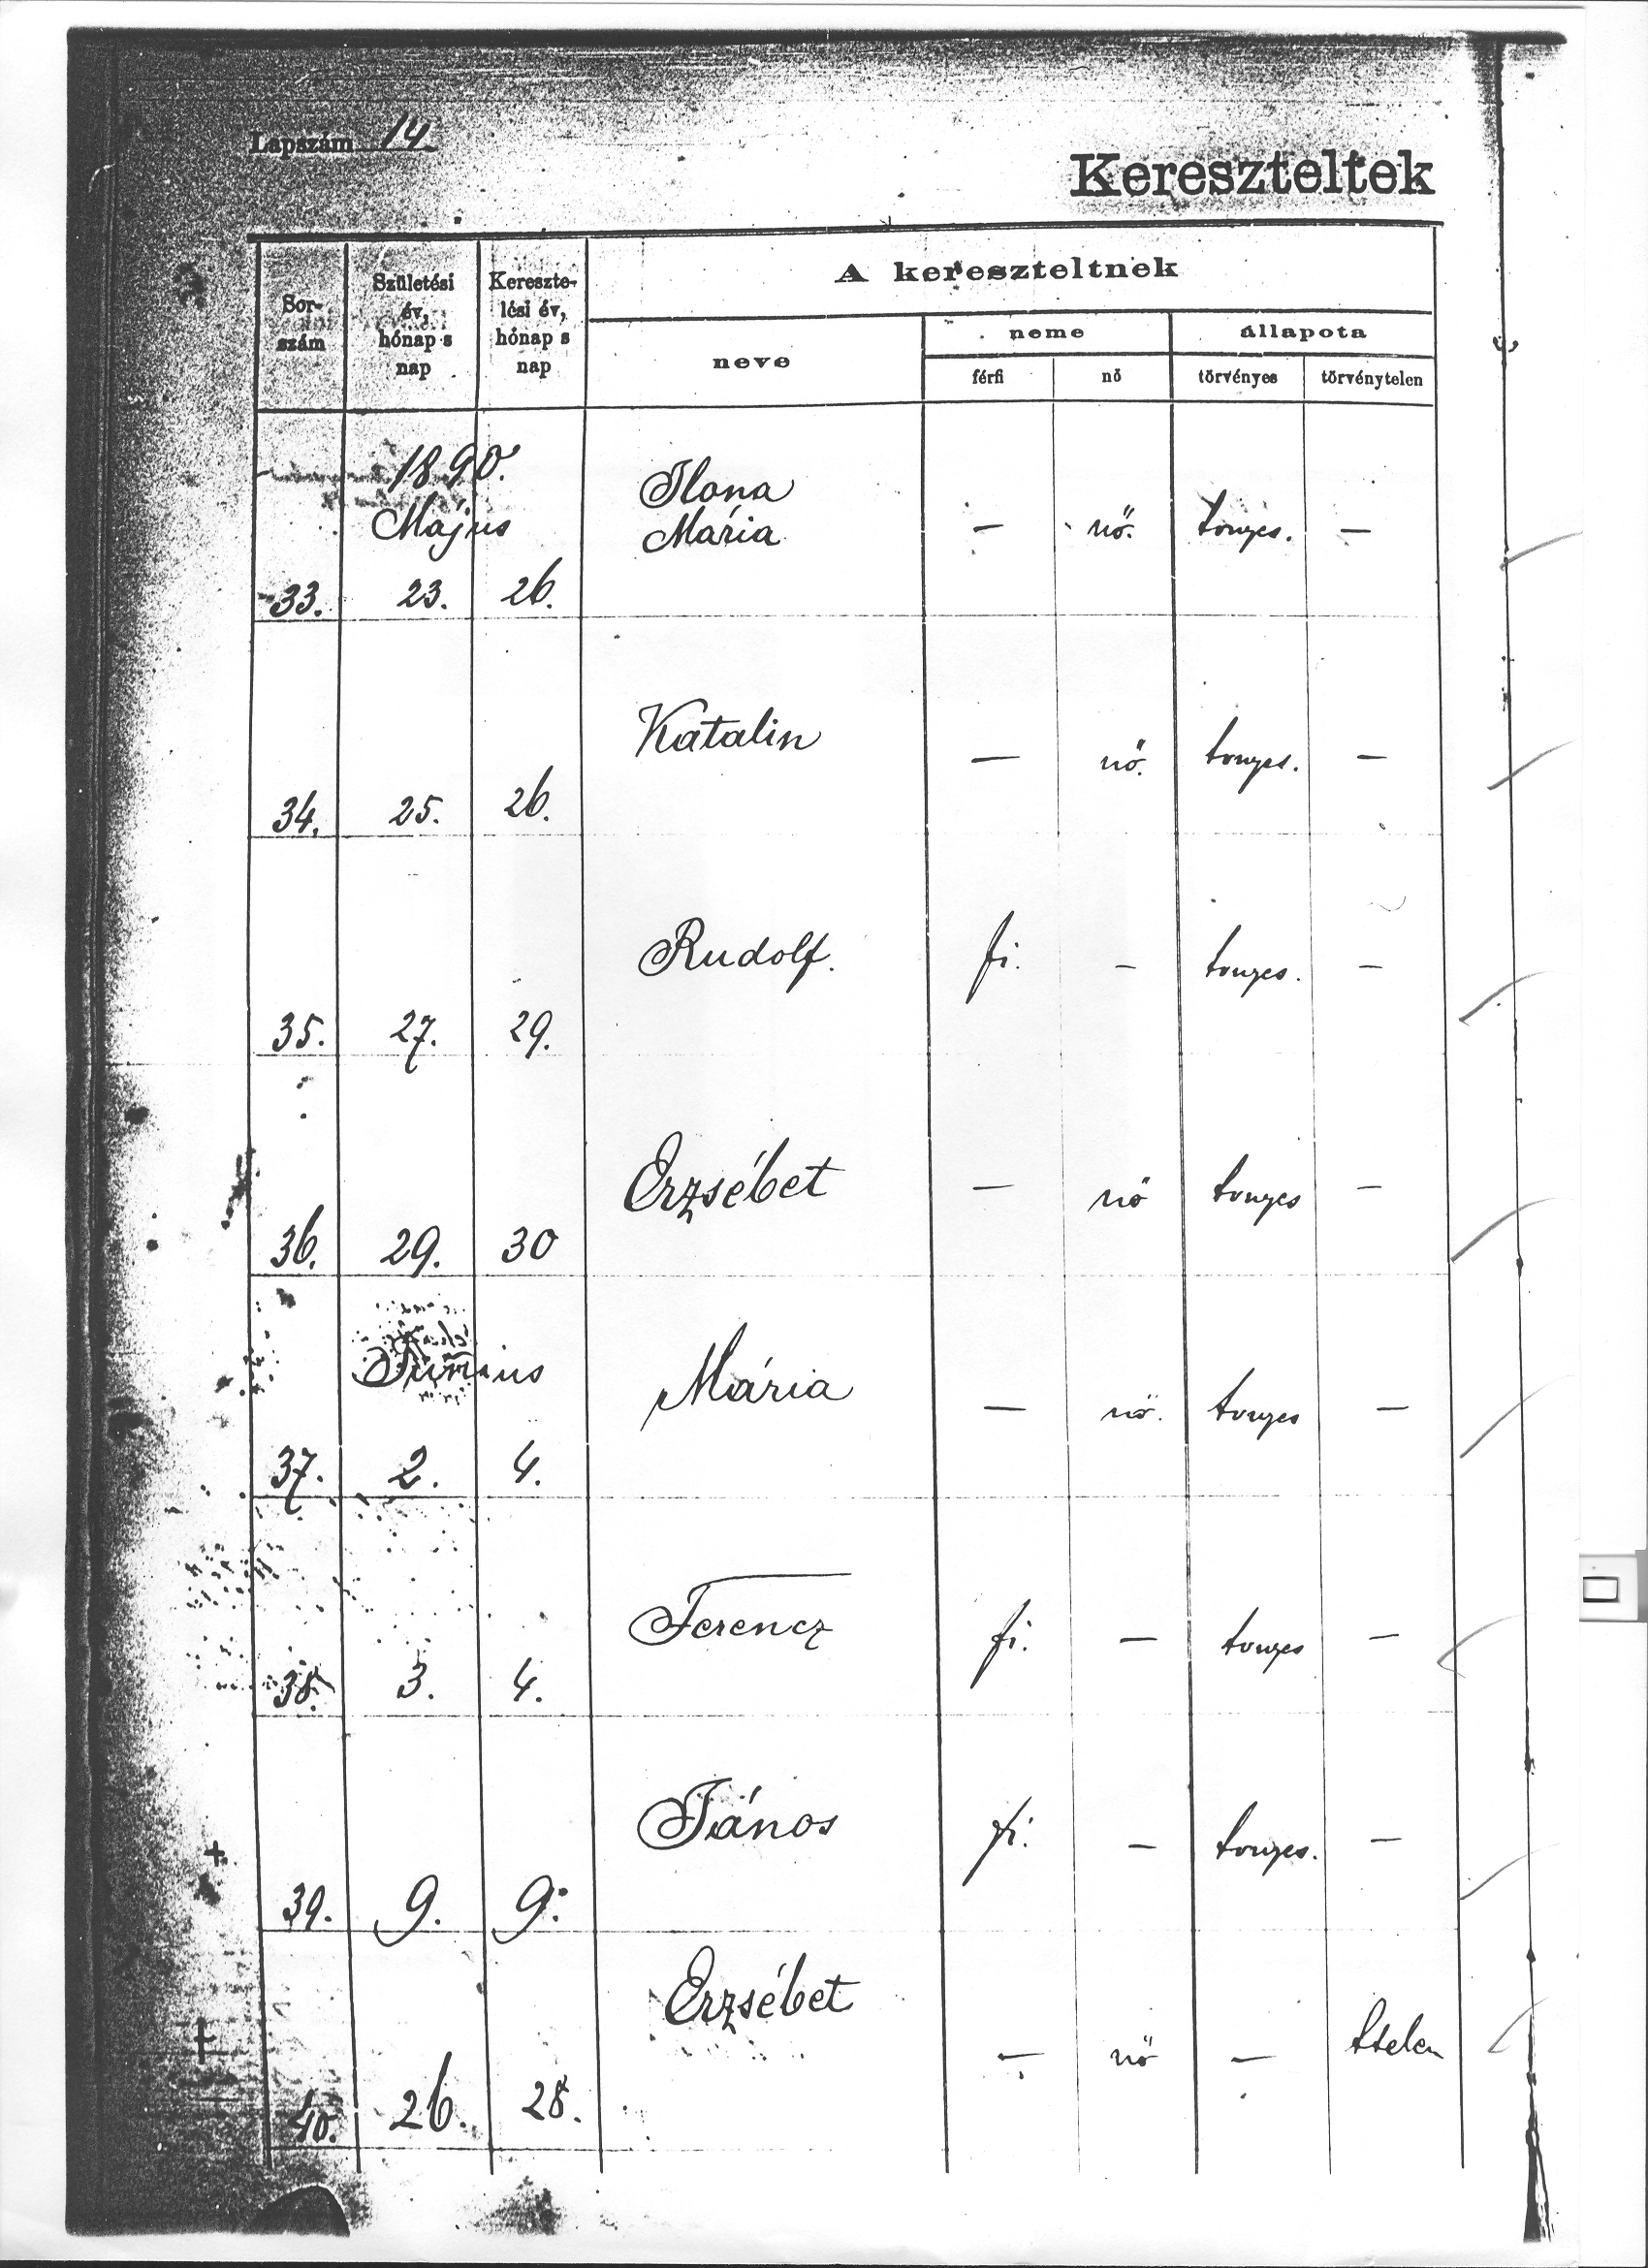 Lapszám 14
Kereszteltek
Sor-
szám
Születési
év,
hónap s
nap
Kereszte-
lési év,
hónap s
nap
A kereszteltnek
neve
neme
állapota
férfi
nő
törvényes
törvénytelen
1890.
Május
33. 23. 26.
Ilona
Mária
— nő. tvnyes. —
34. 25. 26.
Katalin
— nő. tvnyes. —
35. 27. 29.
Rudolf.
fi. — tvnyes. —
36. 29. 30
Erzsébet
— nő tvnyes —
Június
37. 2. 4.
Mária
— nő. tvnyes —
38. 3. 4.
Ferencz
fi. — tvnyes —
39. 9. 9.
János
fi. — tvnyes. —
40. 26. 28.
Erzsébet
— nő — ttelen